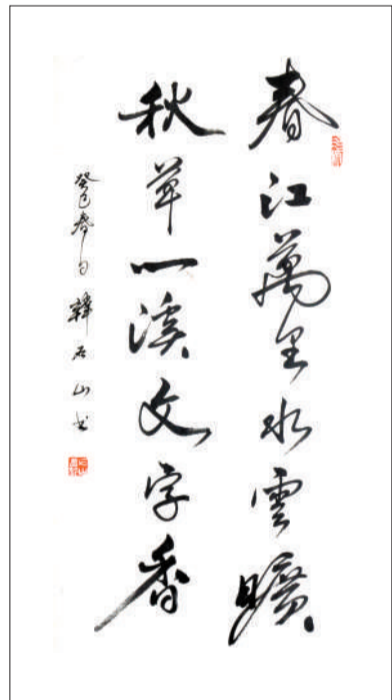 春江萬里水雲曠
秋草一溪文字香
癸巳春日 韓石山书